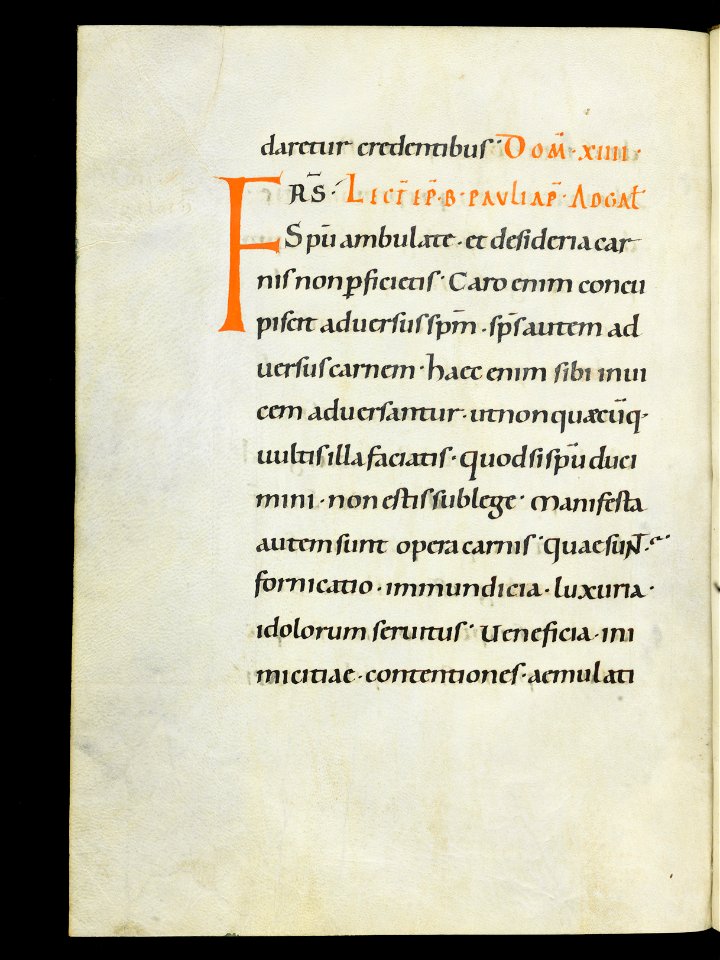 daretur credentibus· DOM̄·XIIII·
FRS̄· LECT̄ EP̄ B· PAVLI AP̄· AD GAL̄
Spū ambulate· et desideria car
nis non ꝑficietis· Caro enim concu
piscit aduersus spm̄· sps̄ autem ad
uersus carnem· haec enim sibi inui
cem aduersantur· ut non quæcūq·
uultis illa faciatis· quod si spū duci
mini· non estis sub lege· Manifesta
autem sunt opera carnis· quae sunt·
fornicatio· immundicia· luxuria·
idolorum seruitus· Ueneficia· ini
micitiae· contentiones· aemulati